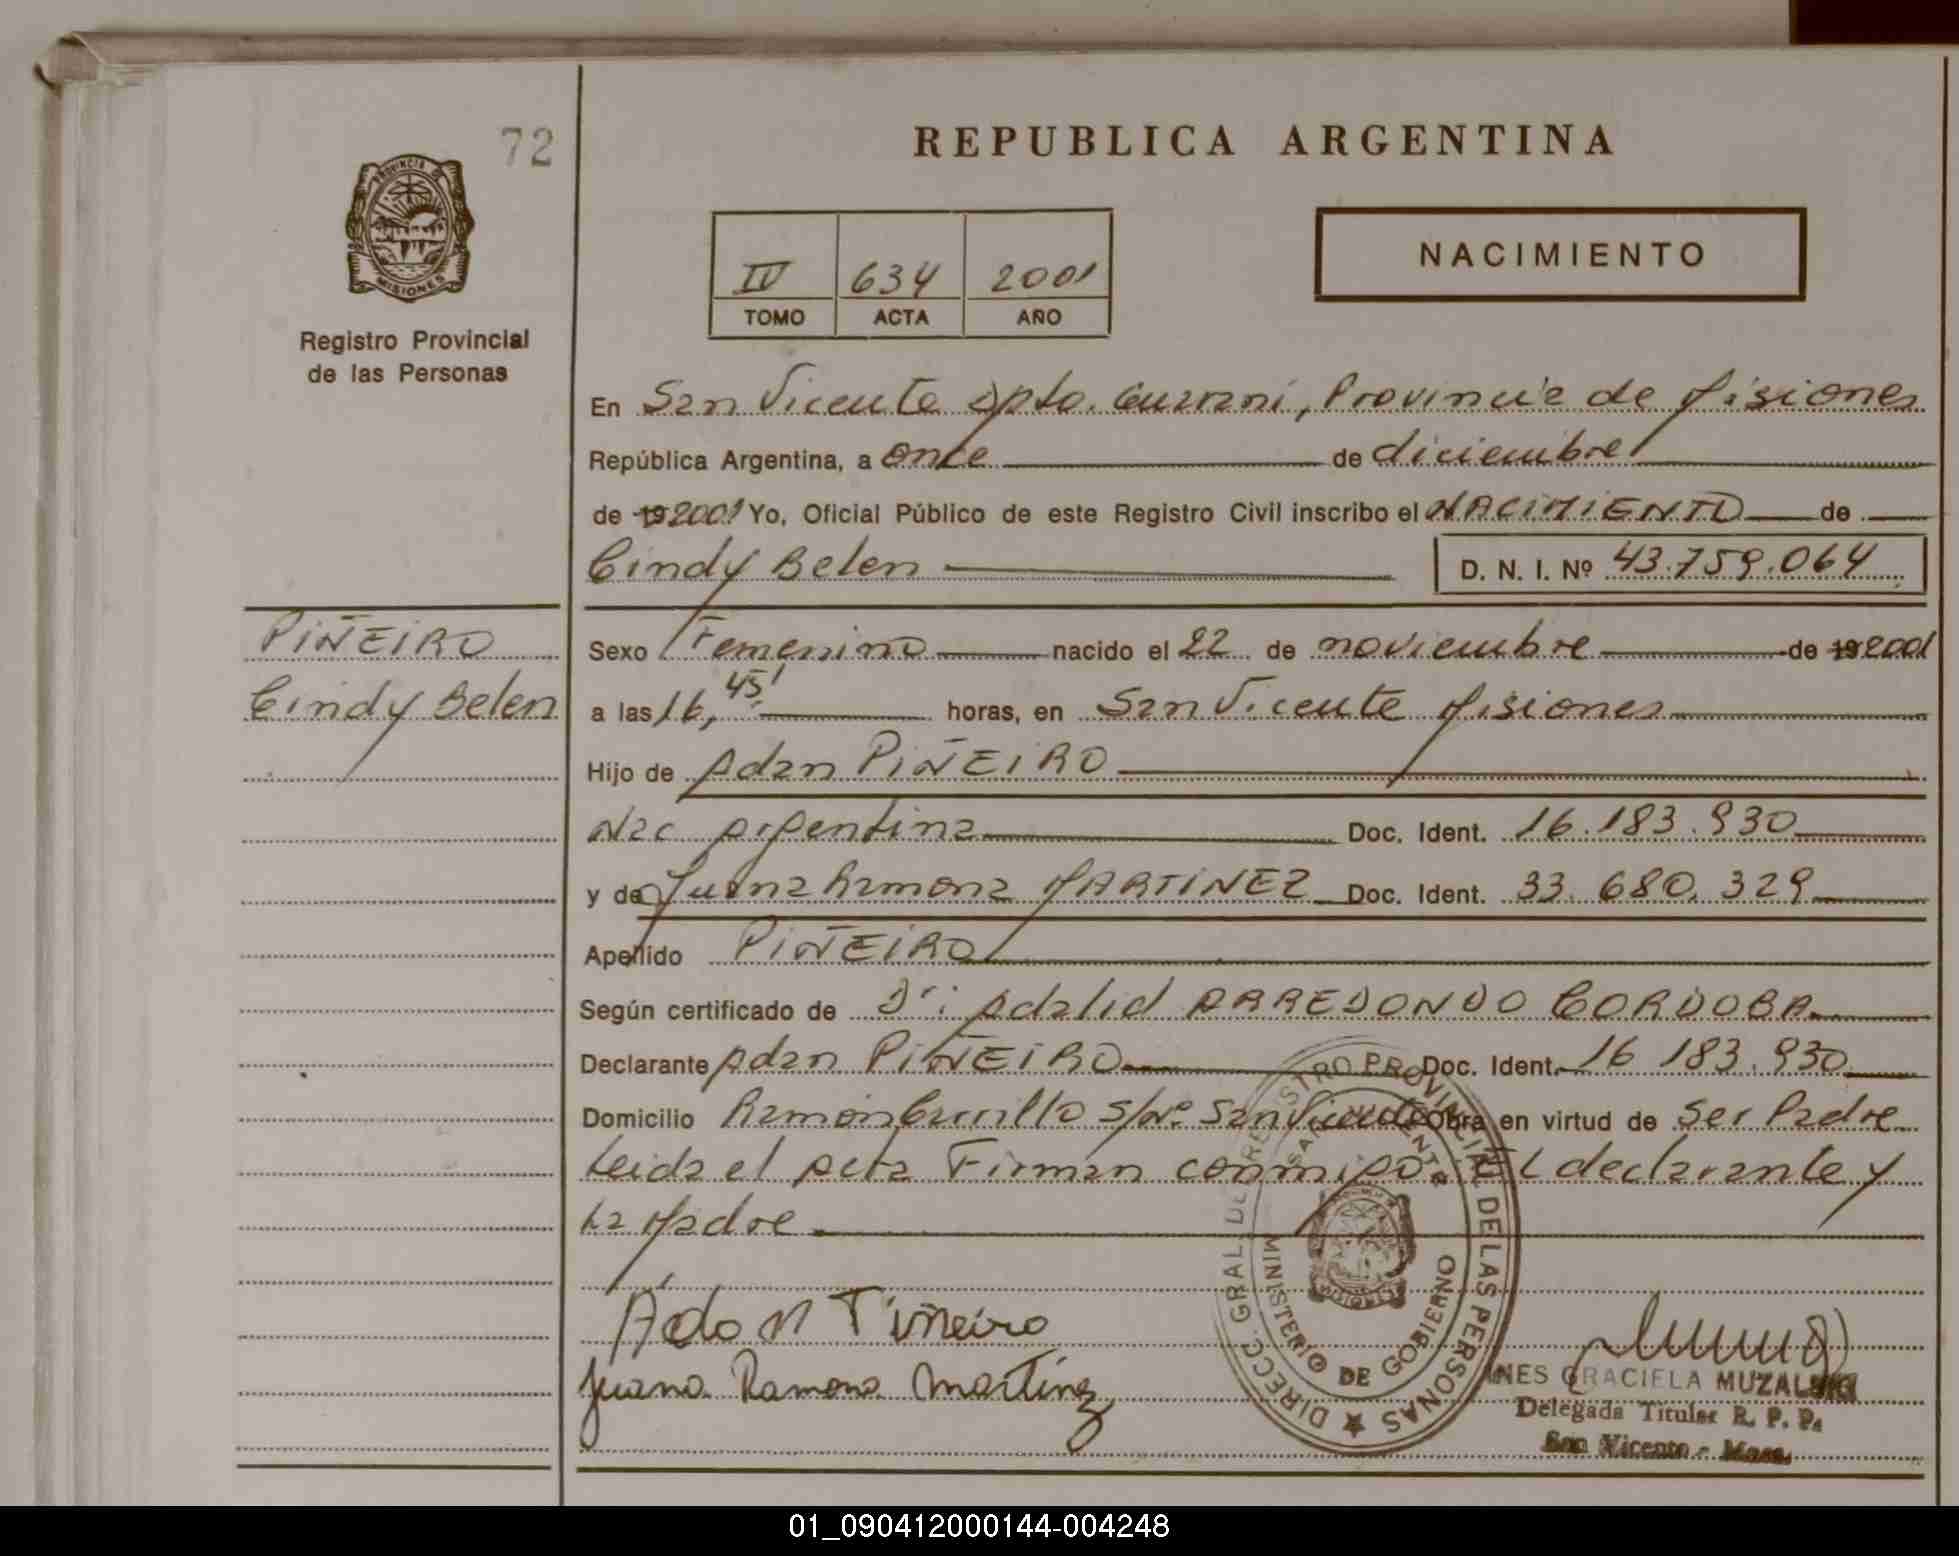 72
PROVINCIA DE
MISIONES
Registro Provincial
de las Personas
REPUBLICA ARGENTINA
IV 634 2001
TOMO ACTA AÑO
NACIMIENTO
En San Vicente Dpto. Guarani, Provincia de Misiones
República Argentina, a once de diciembre
de 19 2001 Yo, Oficial Público de este Registro Civil inscribo el NACIMIENTO de
Cindy Belen D. N. I. Nº 43.759.064
PIÑEIRO
Cindy Belen
Sexo Femenino nacido el 22 de noviembre de 19 2001
a las 16,45' horas, en San Vicente Misiones
Hijo de Adan PIÑEIRO
Nac Argentina Doc. Ident. 16.183.930
y de Juana Ramona MARTINEZ Doc. Ident. 33.680.329
Apellido PIÑEIRO
Según certificado de Dr: Adalid ARREDONDO CORDOBA
Declarante Adan PIÑEIRO Doc. Ident. 16 183.930
Domicilio Ramon Carrillo s/Nº San Vicente Obra en virtud de ser Padre
Leida el acta Firman conmigo El declarante y
La Madre
DIRECC. GRAL. DE REGISTRO PROVINCIAL DE LAS PERSONAS
SAN VICENTE
MINISTERIO DE GOBIERNO
Juana Ramona Martinez
INES GRACIELA
Delegada Titular R. P. P.
San Vicente - Mnes.
01_090412000144-004248